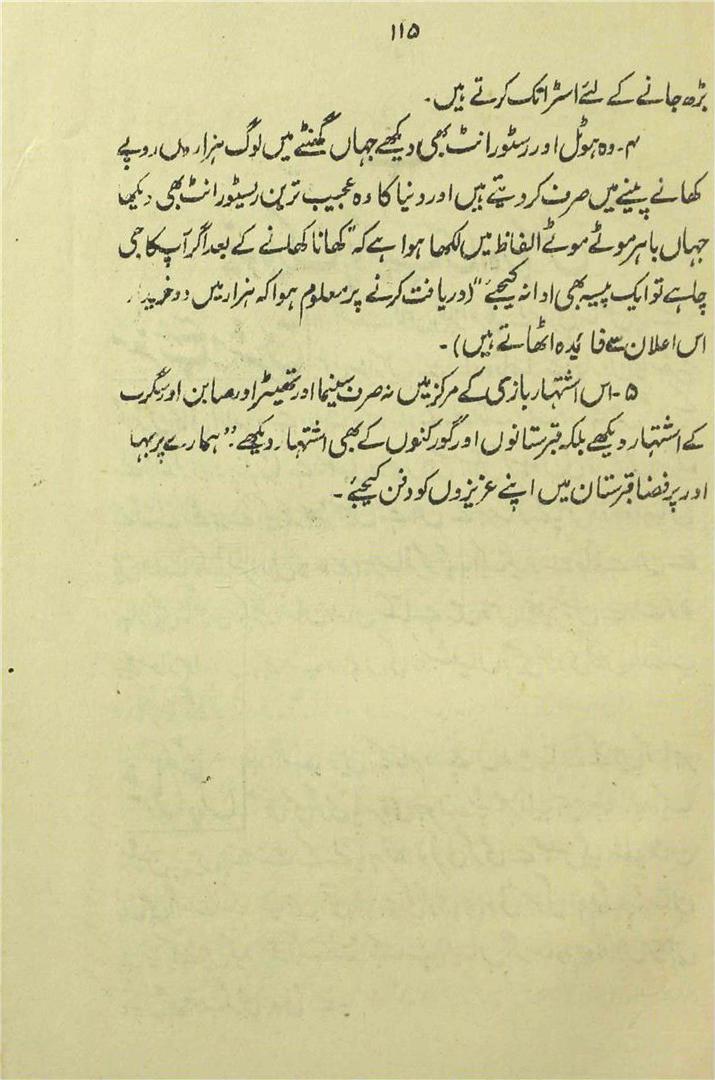 ۱۱۵
بڑھ جانے کے لئے اسٹرائک کرتے ہیں۔
۴۔ وہ ہوٹل اور رسٹورانٹ بھی دیکھے جہاں گھنٹے میں لوگ ہزاروں روپے
کھانے پینے میں صرف کر دیتے ہیں اور دنیا کا وہ عجیب ترین رسیٹورانٹ بھی دیکھا
جہاں باہر موٹے موٹے الفاظ میں لکھا ہوا ہے کہ "کھانا کھانے کے بعد اگر آپ کا جی
چاہے تو ایک پیسہ بھی ادا نہ کیجئے" (دریافت کرنے پر معلوم ہوا کہ ہزار میں دو خریدار
اس اعلان سے فائدہ اٹھاتے ہیں)۔
۵۔ اس اشتہار بازی کے مرکز میں نہ صرف سینما اور تھیٹر اور صابن اور سگرٹ
کے اشتہار دیکھے بلکہ قبرستانوں اور گورکنوں کے بھی اشتہار دیکھے: "ہمارے پر بہا
اور پر فضا قبرستان میں اپنے عزیزوں کو دفن کیجئے۔